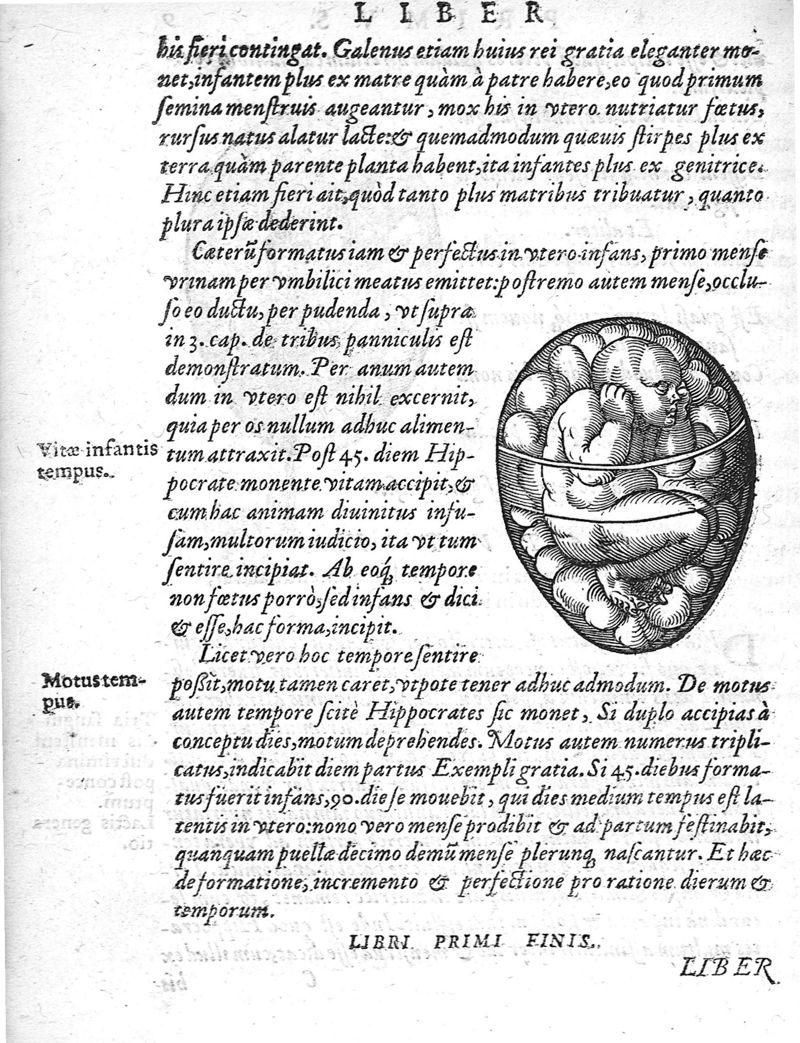 LIBER
his fieri contingat. Galenus etiam huius rei gratia eleganter mo-
net, infantem plus ex matre quàm à patre habere, eo quod primum
semina menstruis augeantur, mox his in vtero nutriatur fœtus,
rursus natus alatur lacte: & quemadmodum quæuis stirpes plus ex
terra quàm parente planta habent, ita infantes plus ex genitrice.
Hinc etiam fieri ait, quòd tanto plus matribus tribuatur, quanto
plura ipsæ dederint.
Cæterũ formatus iam & perfectus in vtero infans, primo mense
vrinam per vmbilici meatus emittet: postremo autem mense, occlu-
so eo ductu, per pudenda, vt supra
in 3. cap. de tribus panniculis est
demonstratum. Per anum autem
dum in vtero est nihil excernit,
quia per os nullum adhuc alimen-
Vitæ infantis
tempus.
tum attraxit. Post 45. diem Hip-
pocrate monente vitam accipit, &
cum hac animam diuinitus infu-
sam, multorum iudicio, ita vt tum
sentire incipiat. Ab eoq́; tempore
non fœtus porrò, sed infans & dici
& esse, hac forma, incipit.
Licet vero hoc tempore sentire
Motus tem-
pus.
poßit, motu tamen caret, vtpote tener adhuc admodum. De motus
autem tempore scitè Hippocrates sic monet, Si duplo accipias à
conceptu dies, motum deprehendes. Motus autem numerus tripli-
catus, indicabit diem partus Exempli gratia. Si 45. diebus forma-
tus fuerit infans, 90. die se mouebit, qui dies medium tempus est la-
tentis in vtero: nono vero mense prodibit & ad partum festinabit,
quanquam puellæ decimo demũ mense plerunq́; nascantur. Et hæc
de formatione, incremento & perfectione pro ratione dierum &
temporum.
LIBRI PRIMI FINIS.
LIBER